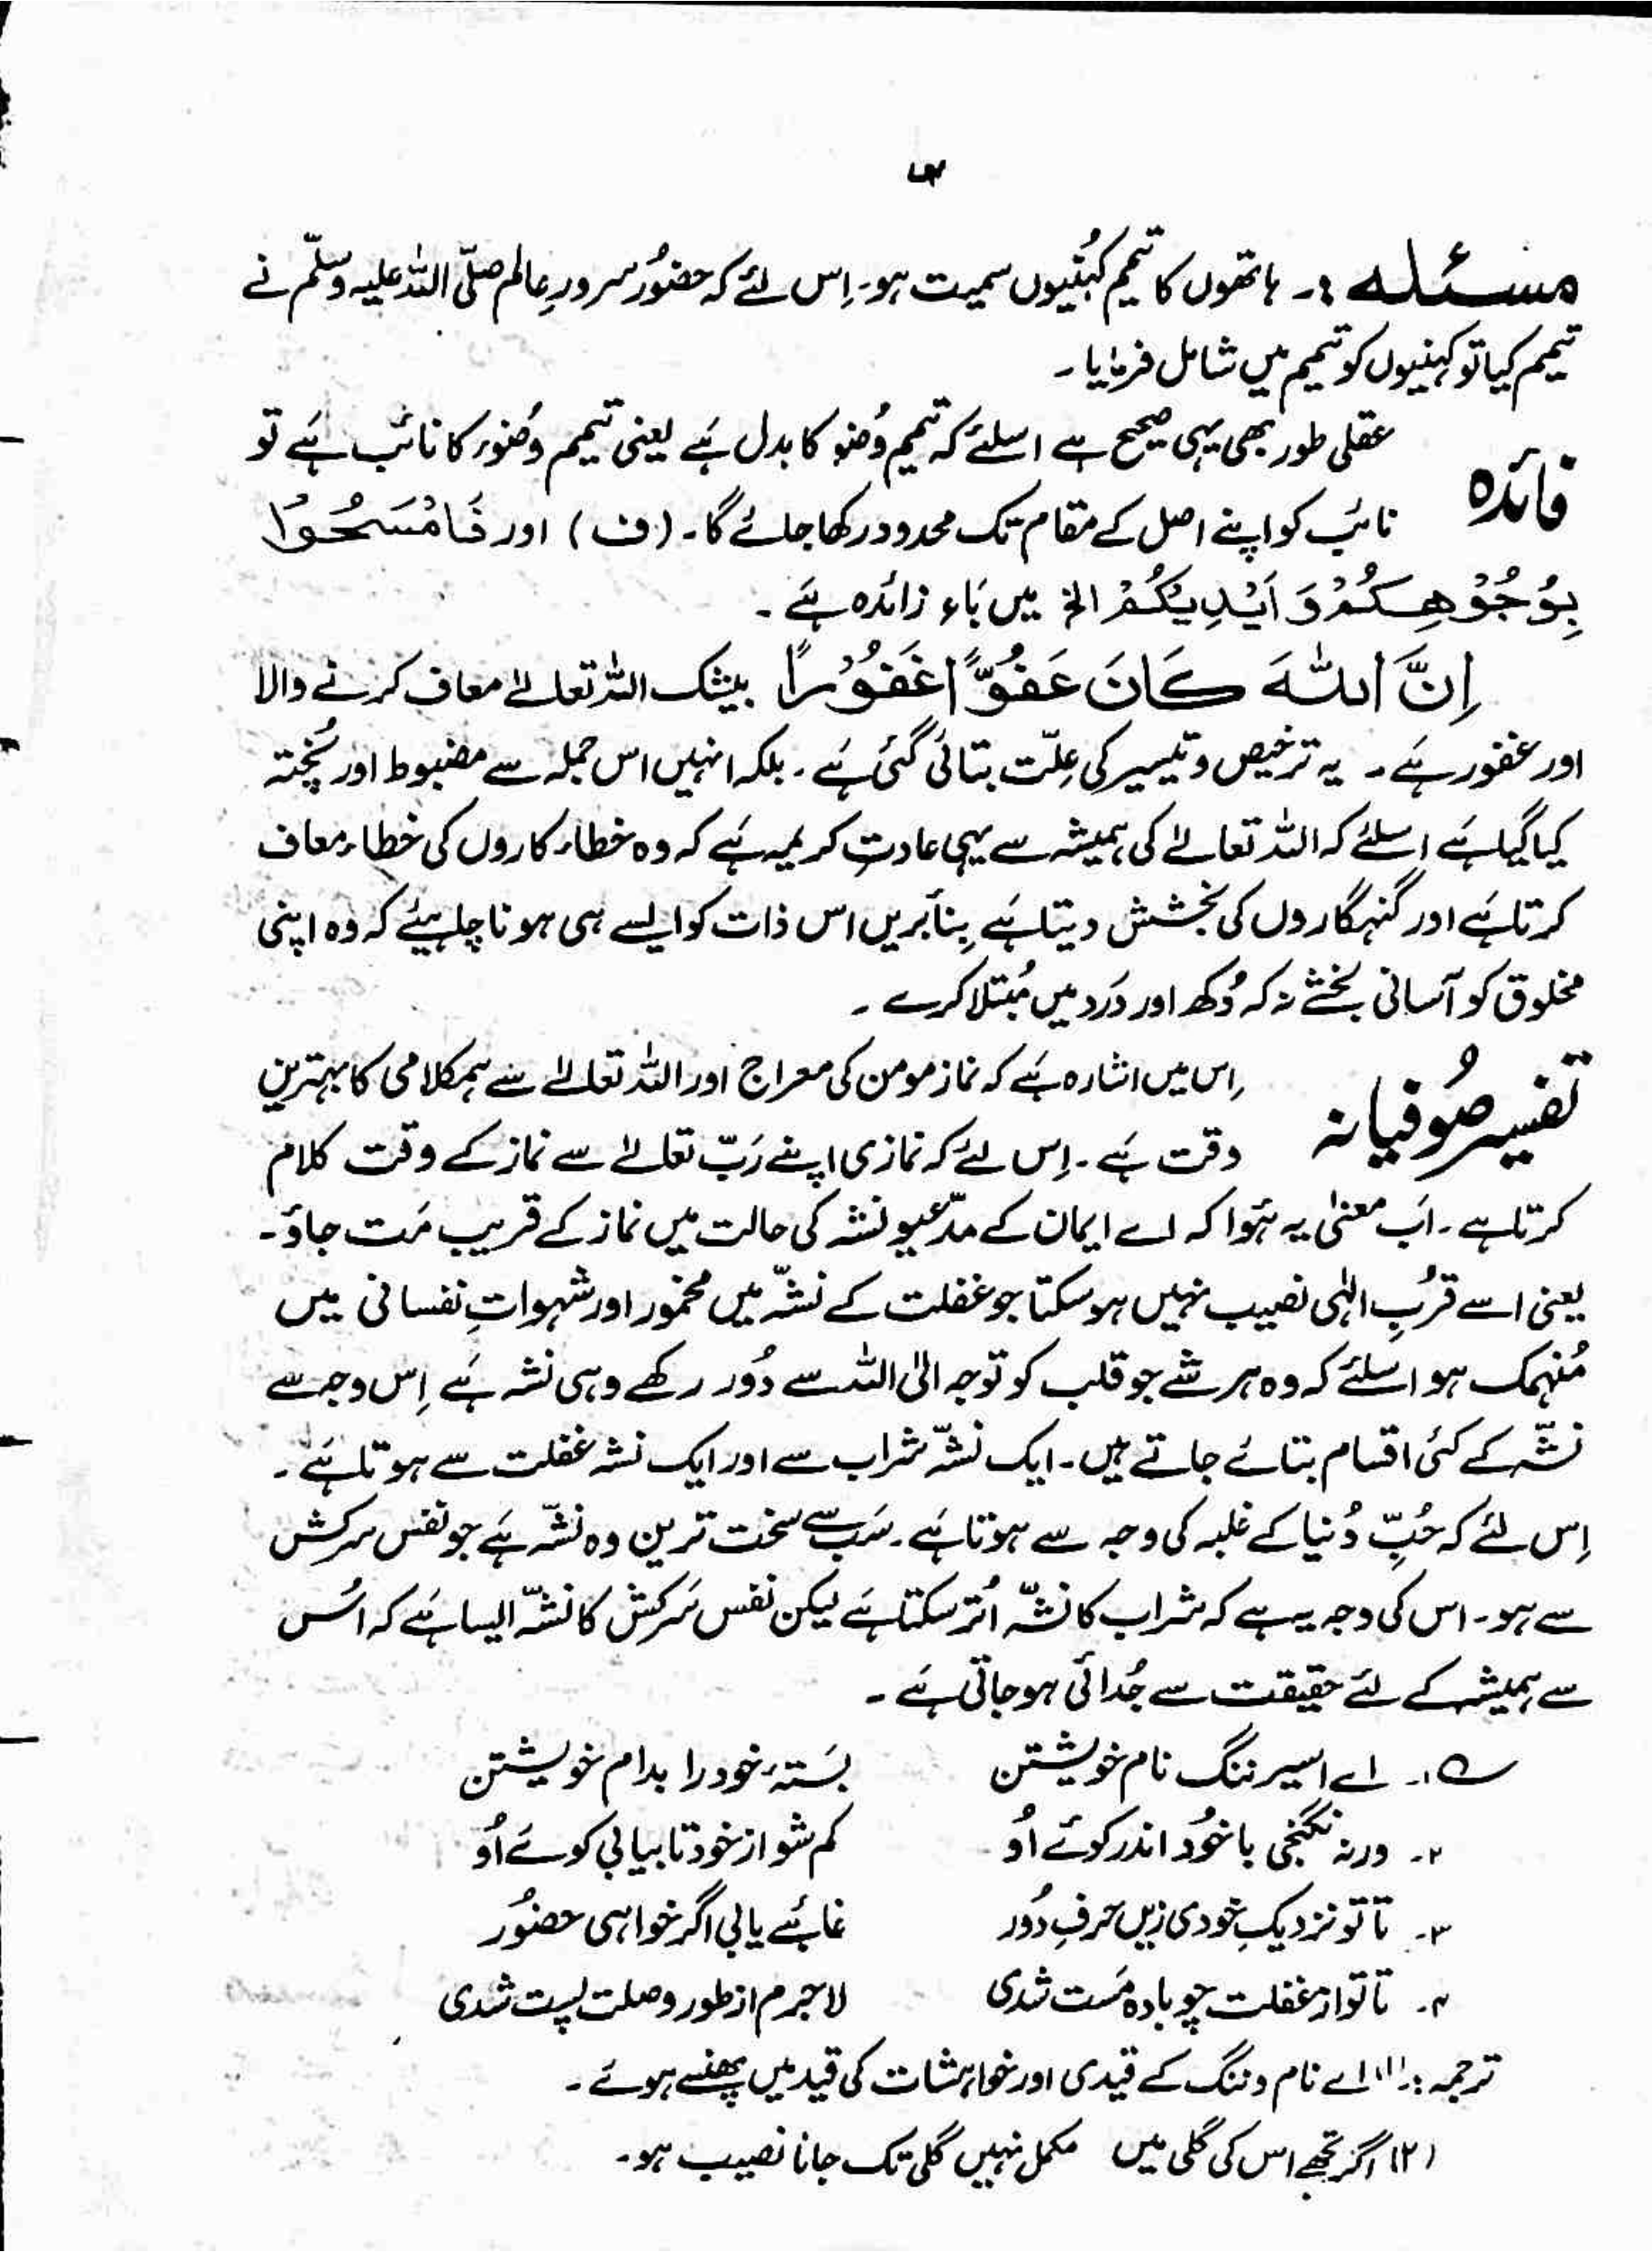 مسئلہ :۔ ہاتھوں کا تیمم کُہنیوں سمیت ہو۔ اِس لئے کہ حضوُر سرورِ عالم صلّی اللہ علیہ وسلّم نے
تیمم کیا تو کہنیوں کو تیمم میں شامل فرمایا۔
فائدہ
عقلی طور بھی یہی صحیح ہے اسلئے کہ تیمم وُضو کا بدل ہَے یعنی تیمم وُضوء کا نائب ہَے تو
نائب کو اپنے اصل کے مقام تک محدود رکھا جائے گا۔ (ف) اور فَامْسَحُوْا
بِوُجُوْهِكُمْ وَ اَيْدِيْكُمْ الخ میں بَاء زائدہ ہَے ۔
اِنَّ اللّٰهَ كَانَ عَفُوًّا غَفُوْرًا بیشک اللہ تعالےٰ معاف کرنے والا
اور غفور ہَے ۔ یہ ترخیص و تیسیر کی عِلّت بتائی گئی ہَے ۔ بلکہ انہیں اس جملہ سے مضبوط اور پُختہ
کیا گیا ہَے اسلئے کہ اللہ تعالےٰ کی ہمیشہ سے یہی عادتِ کریمہ ہَے کہ وہ خطاء کاروں کی خطاء معاف
کرتا ہَے اور گنہگاروں کی بخشش دیتا ہَے بِنابریں اس ذات کو ایسے ہی ہونا چاہیئے کہ وہ اپنی
مخلوق کو آسانی بخشے نہ کہ دُکھ اور دَرد میں مُبتلا کرے ۔
تفسیر صُوفیانہ
اِس میں اشارہ ہَے کہ نماز مومن کی معراج اور اللہ تعالےٰ سے ہمکلامی کا بہترین
وقت ہَے ۔ اِس لئے کہ نمازی اپنے رَبّ تعالےٰ سے نماز کے وقت کلام
کرتا ہے ۔ اَب معنیٰ یہ ہُوا کہ اے ایمان کے مدّعیو نشہ کی حالت میں نماز کے قریب مَت جاؤ ۔
یعنی اسے قُربِ الہٰی نصیب نہیں ہوسکتا جو غفلت کے نشّہ میں مخمور اور شہواتِ نفسانی میں
مُنہمک ہو اسلئے کہ وہ ہر شے جو قلب کو توجہ الی اللہ سے دُور رکھے وہی نشہ ہَے اِس وجہ سے
نشّہ کے کئی اقسام بتائے جاتے ہیں ۔ ایک نشّہ شراب سے اور ایک نشہ غفلت سے ہوتا ہَے ۔
اِس لئے کہ حُبِّ دُنیا کے غلبہ کی وجہ سے ہوتا ہَے ۔ سَب سے سخت ترین وہ نشّہ ہَے جو نفس سرکش
سے ہو ۔ اس کی وجہ یہ ہے کہ شراب کا نشّہ اُتر سکتا ہَے لیکن نفس سَرکش کا نشّہ ایسا ہَے کہ اُس
سے ہمیشہ کے لئے حقیقت سے جُدائی ہوجاتی ہَے ۔
؎ ۱۔ اے اسیر ننگ نام خویشتن بَستہٴ خود را بدام خویشتن
۲۔ ورنہ نگنجی با خوُد اندر کوئے اوُ کم شو از خود تا بیابی کوئے اوُ
۳۔ تا تو نزدیکِ خودی زیں حرفِ دُور غائبے یابی اگر خواہی حضوُر
۴۔ تا تو از غفلت چو بادہ مَست شدی لاجرم از طور وصلت پست شدی
ترجمہ :۔ (۱) اے نام و ننگ کے قیدی اور خواہشات کی قید میں پھنسے ہوئے ۔
(۲) اگر تجھے اس کی گلی میں مکمل نہیں گلی تک جانا نصیب ہو۔